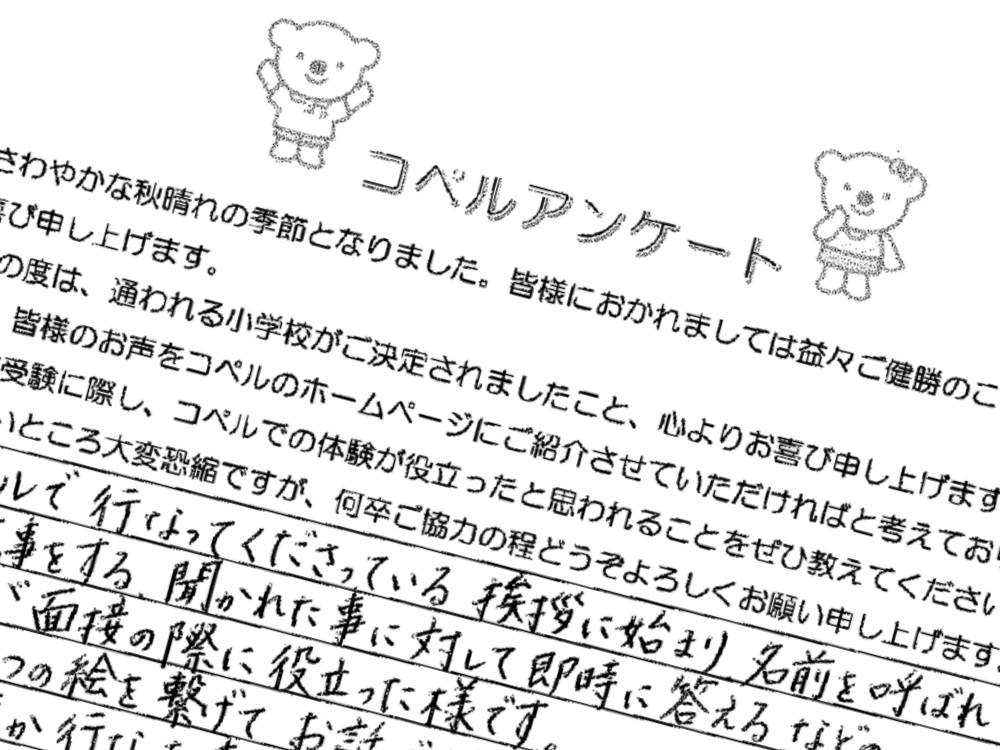 コペルアンケート
さわやかな秋晴れの季節となりました。皆様におかれましては益々ご健勝のこ
喜び申し上げます。
の度は、通われる小学校がご決定されましたこと、心よりお喜び申し上げます
皆様のお声をコペルのホームページにご紹介させていただければと考えており
受験に際し、コペルでの体験が役立ったと思われることをぜひ教えてください
いところ大変恐縮ですが、何卒ご協力の程どうぞよろしくお願い申し上げます。
ルで行なってくださっている挨拶に始まり、名前を呼ばれ
事をする、聞かれた事に対して即時に答えるなどの
が面接の際に役立った様です。
つの絵を繋げてお話
か行な